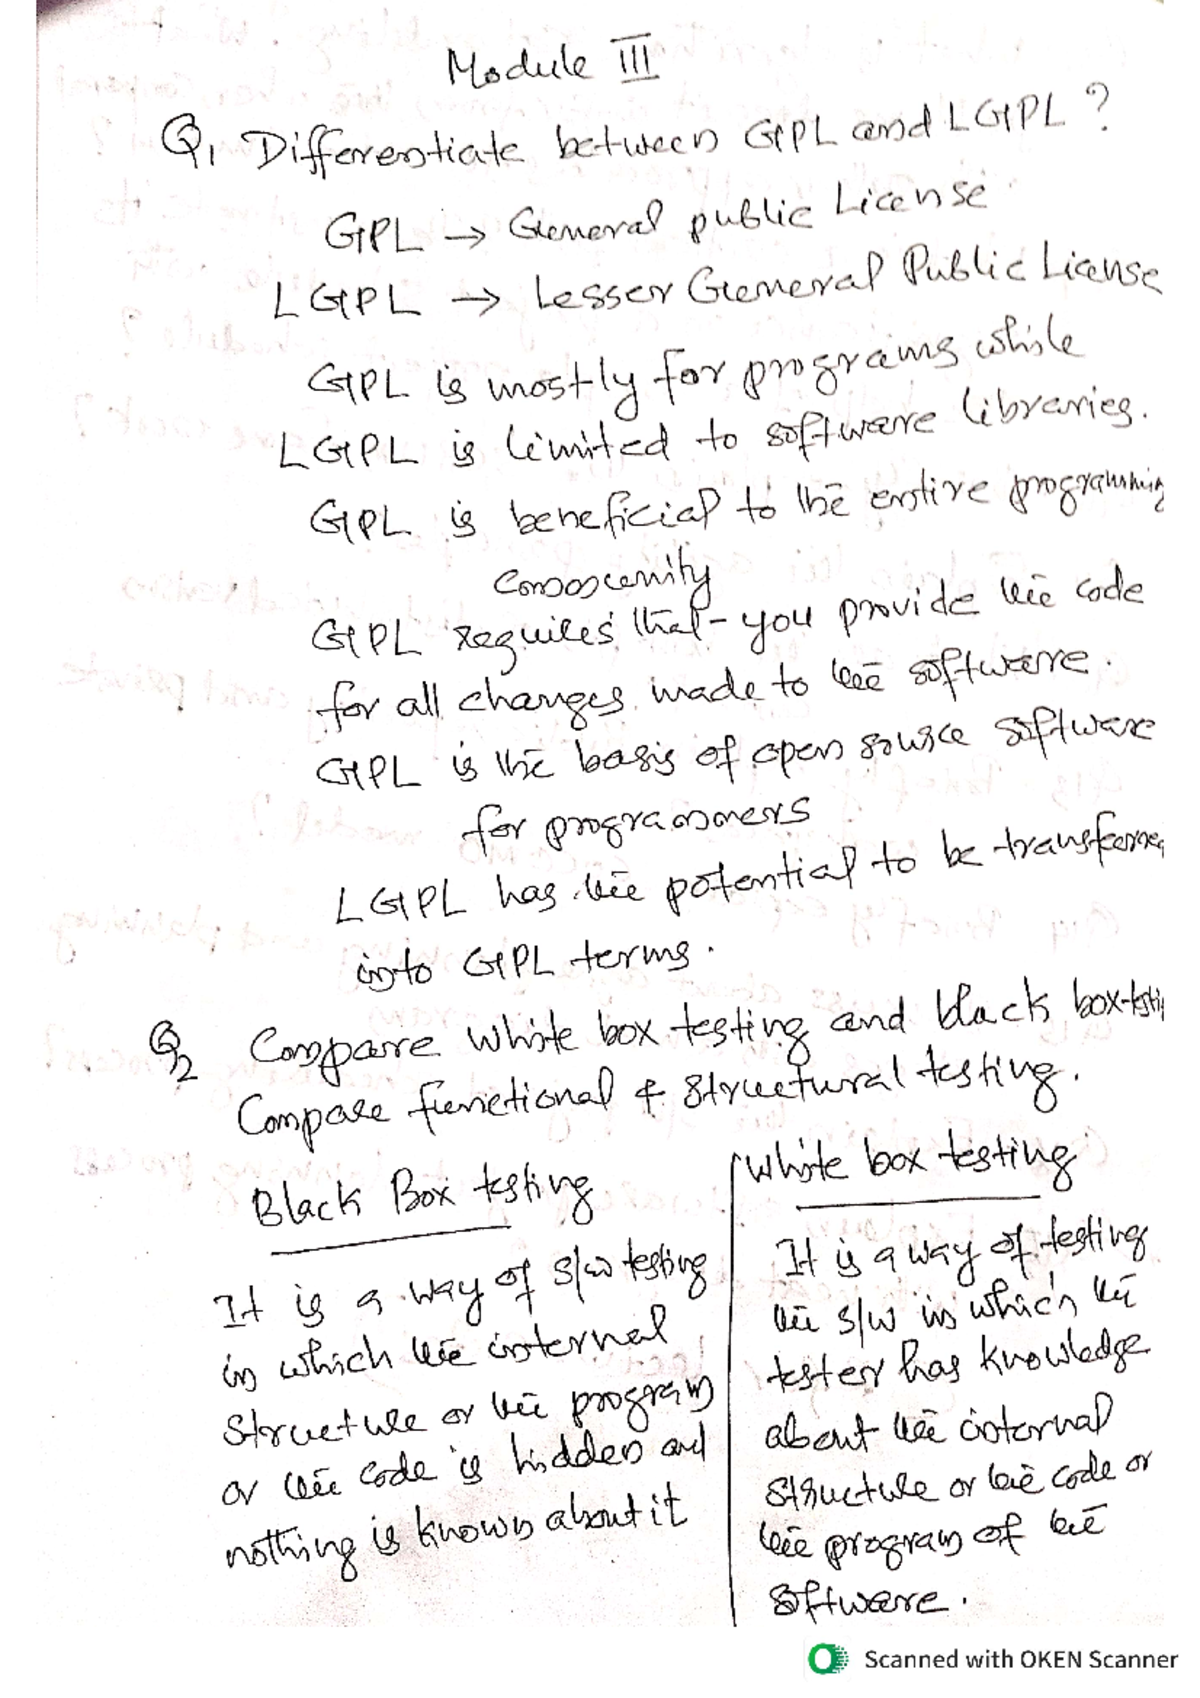 Module III
Q1 Differentiate between GPL and LGPL ?
GPL → General public License
LGPL → Lesser General Public License
GPL is mostly for programs while
LGPL is limited to software libraries.
GPL is beneficial to the entire programming
community
GPL requires that you provide the code
for all changes made to the software.
GPL is the basis of open source software
for programmers
LGPL has the potential to be transferred
into GPL terms.
Q2 Compare white box testing and black box testing
Compare functional & structural testing.
Black Box testing
It is a way of s/w testing
in which the internal
structure or the program
or the code is hidden and
nothing is known about it
white box testing
It is a way of testing
the s/w in which the
tester has knowledge
about the internal
structure or the code or
the program of the
software.
Scanned with OKEN Scanner